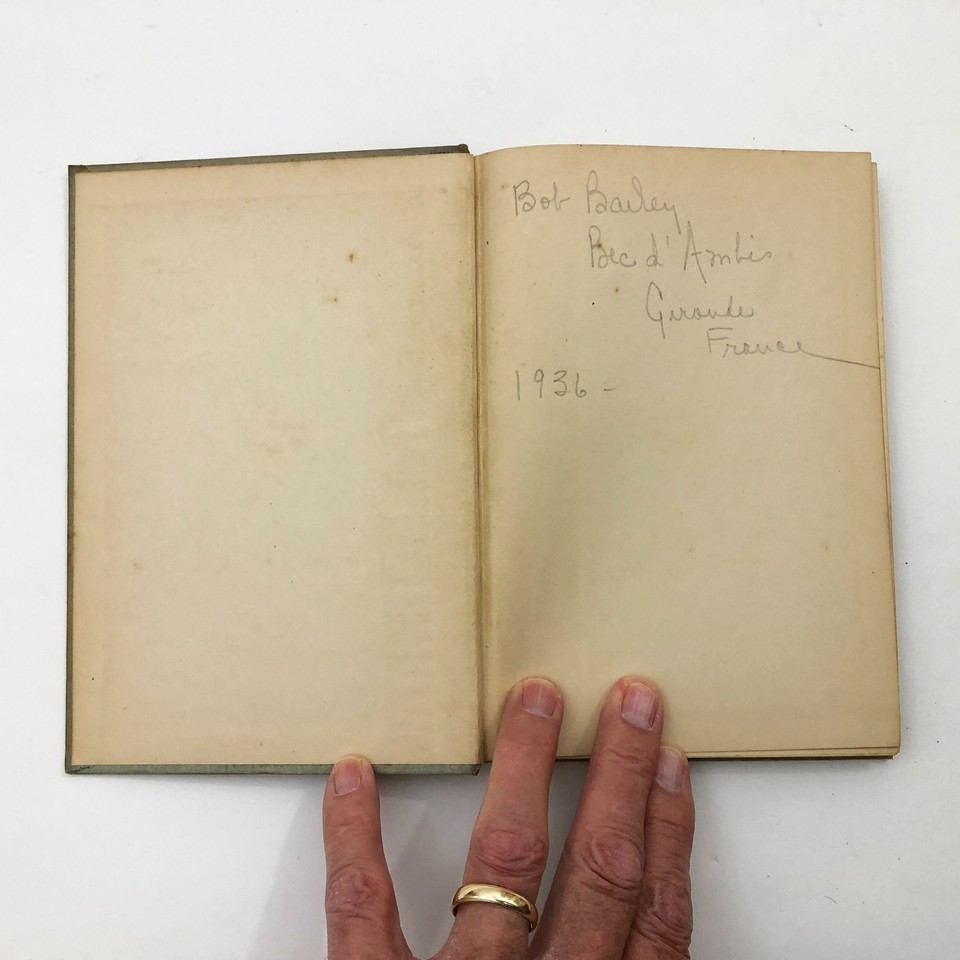 Bob Bailey
Bec d'Ambis
Gironde
France
1936 -